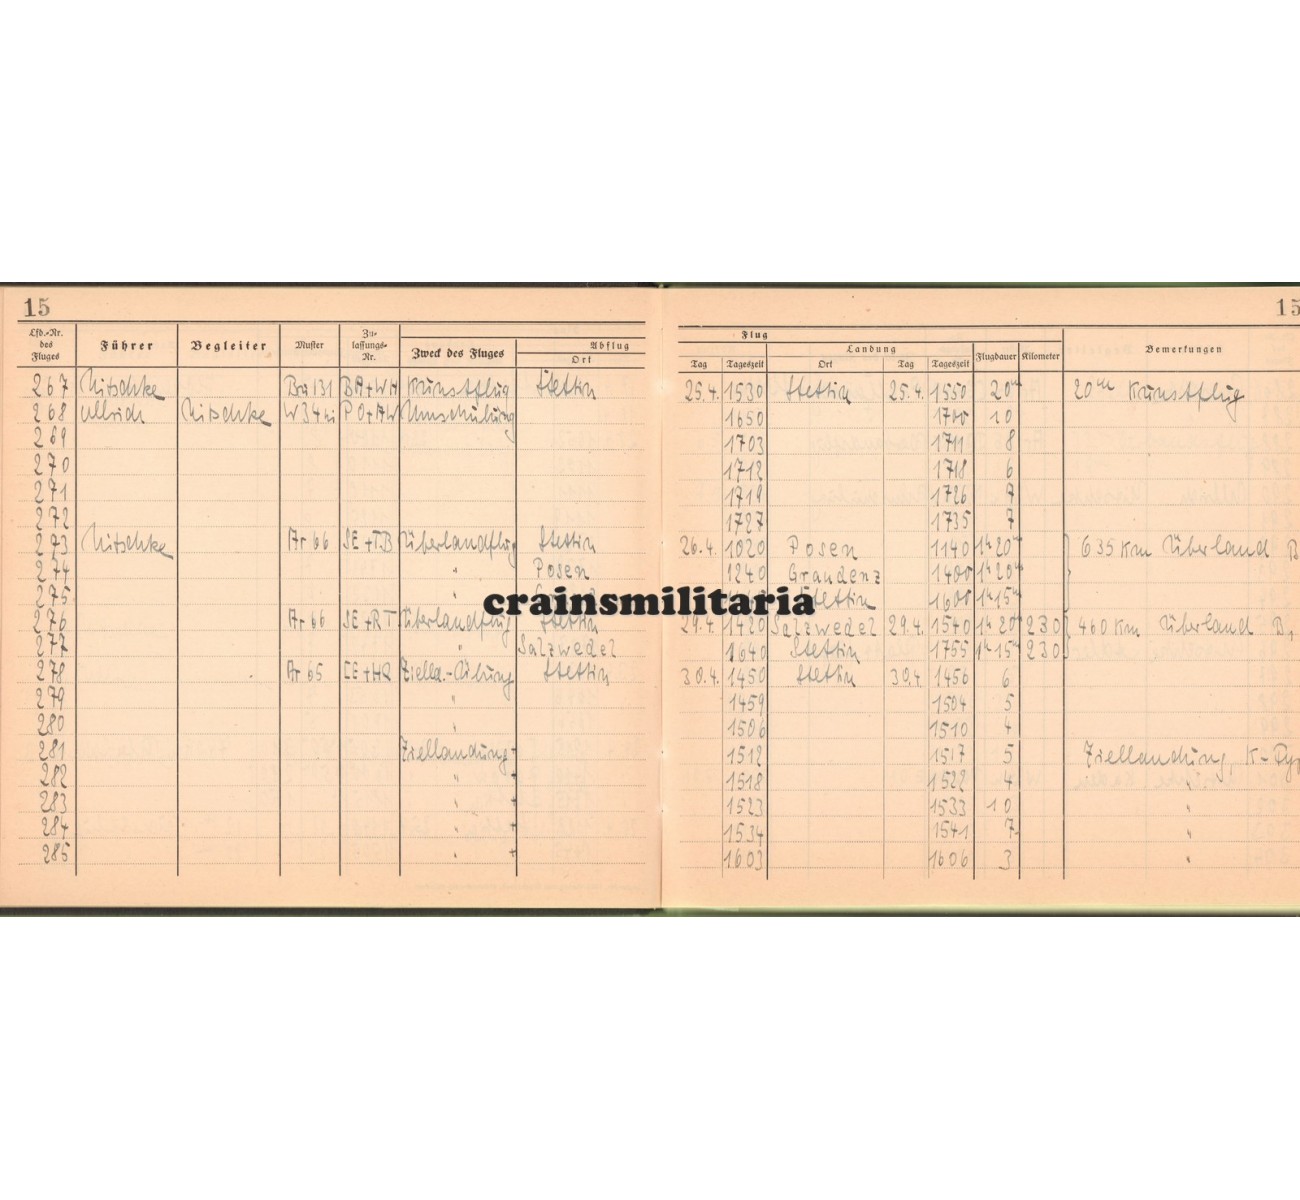 15 15
Lfd.-Nr. des Fluges Führer Begleiter Muster Zulassungs-Nr. Zweck des Fluges Abflug Ort
Flug
Tag Tageszeit Landung Ort Tag Tageszeit Flugdauer Kilometer Bemerkungen
267 Nitschke Bü 131 BA+WH Kunstflug Stettin 25.4. 1530 Stettin 25.4. 1550 20m 20m Kunstflug
268 Ullrich Nitschke W34hi PO+AW Umschulung 1650 1700 10
269 1703 1711 8
270 1712 1718 6
271 1719 1726 7
272 1727 1735 7
273 Nitschke Ar 66 SE+TB Überlandflug Stettin 26.4. 1020 Posen 1140 1h 20m 635 Km Überland B
274 " Posen 1240 Graudenz 1400 1h 20m
275 Stettin 1600 1h 15m
276 Ar 66 SE+RT Überlandflug Stettin 29.4. 1420 Salzwedel 29.4. 1540 1h 20m 230 460 Km Überland B,
277 " Salzwedel 1640 Stettin 1755 1h 15m 230
278 Ar 65 CE+HQ Ziella.-Übung Stettin 30.4. 1450 Stettin 30.4. 1456 6
279 " 1459 1504 5
280 " 1506 1510 4
281 Ziellandung + 1512 1517 5 Ziellandung, K-
282 " + 1518 1522 4 "
283 " + 1523 1533 10
284 " + 1534 1541 7 "
285 " + 1603 1606 3 "
crainsmilitaria